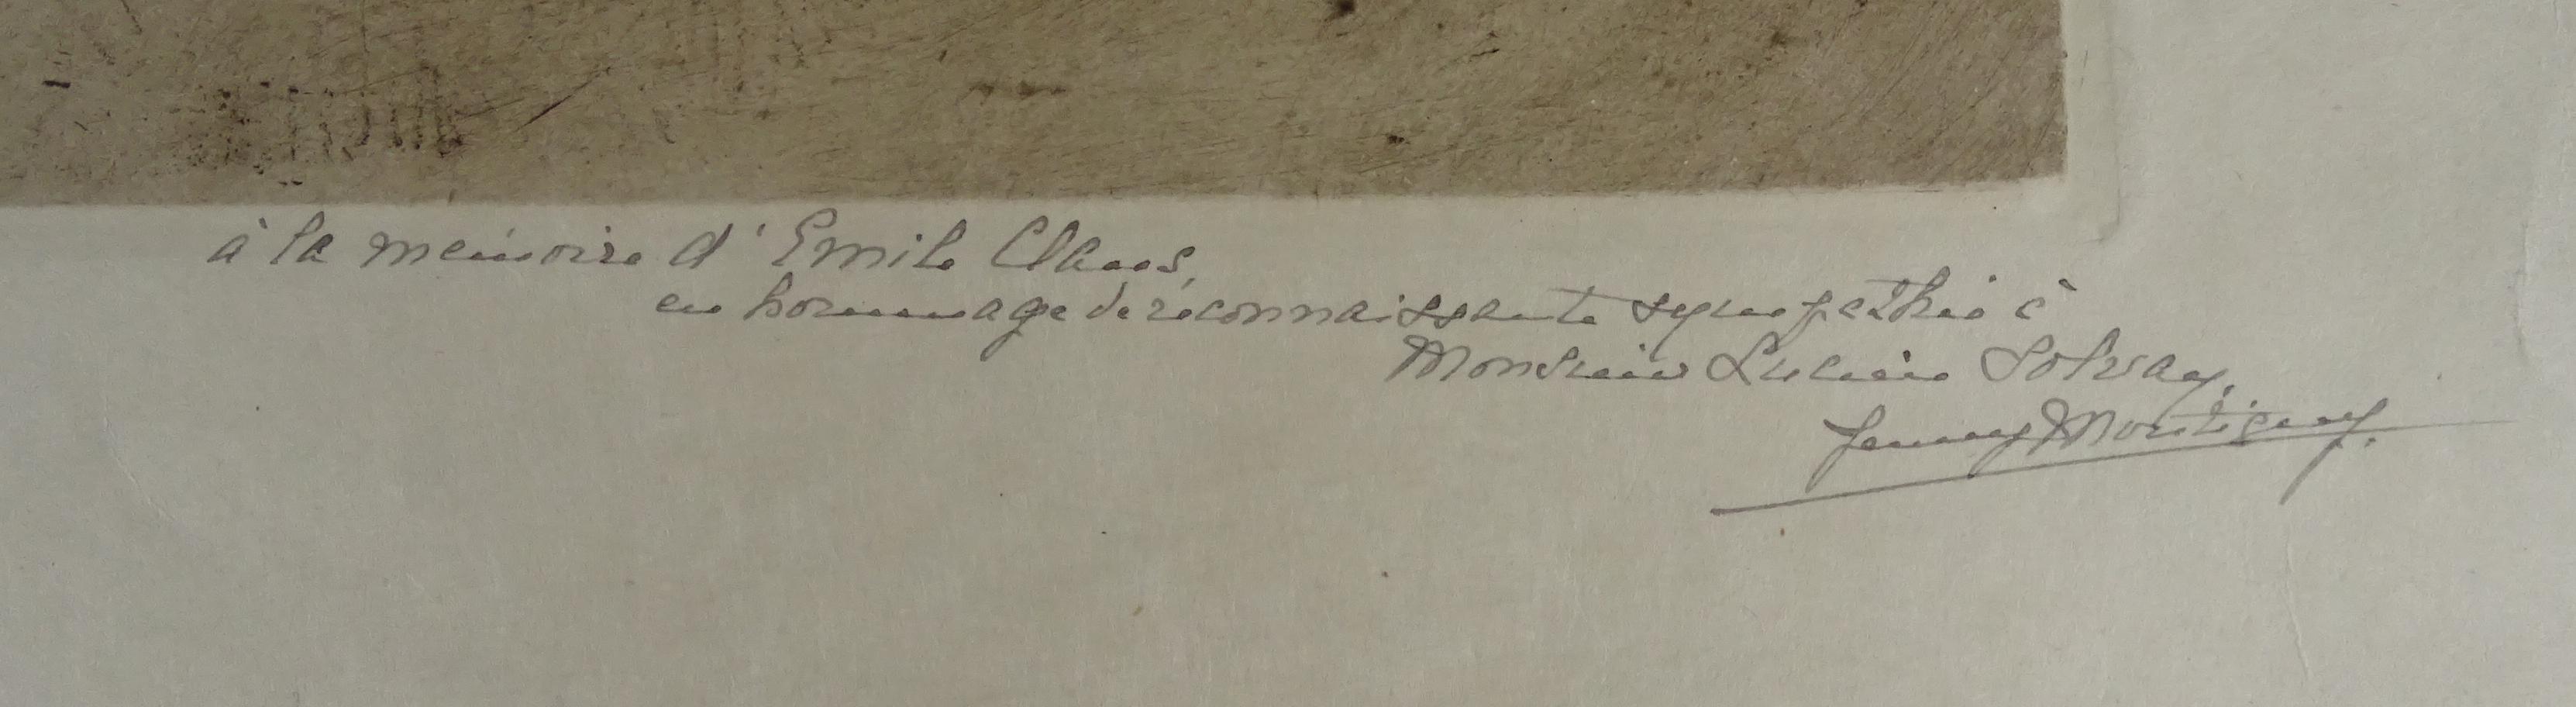 à la mémoire d'Emile Claus,
en hommage de reconnaissante sympathie à
Monsieur Lucien Solvay.
Jenny Montigny.